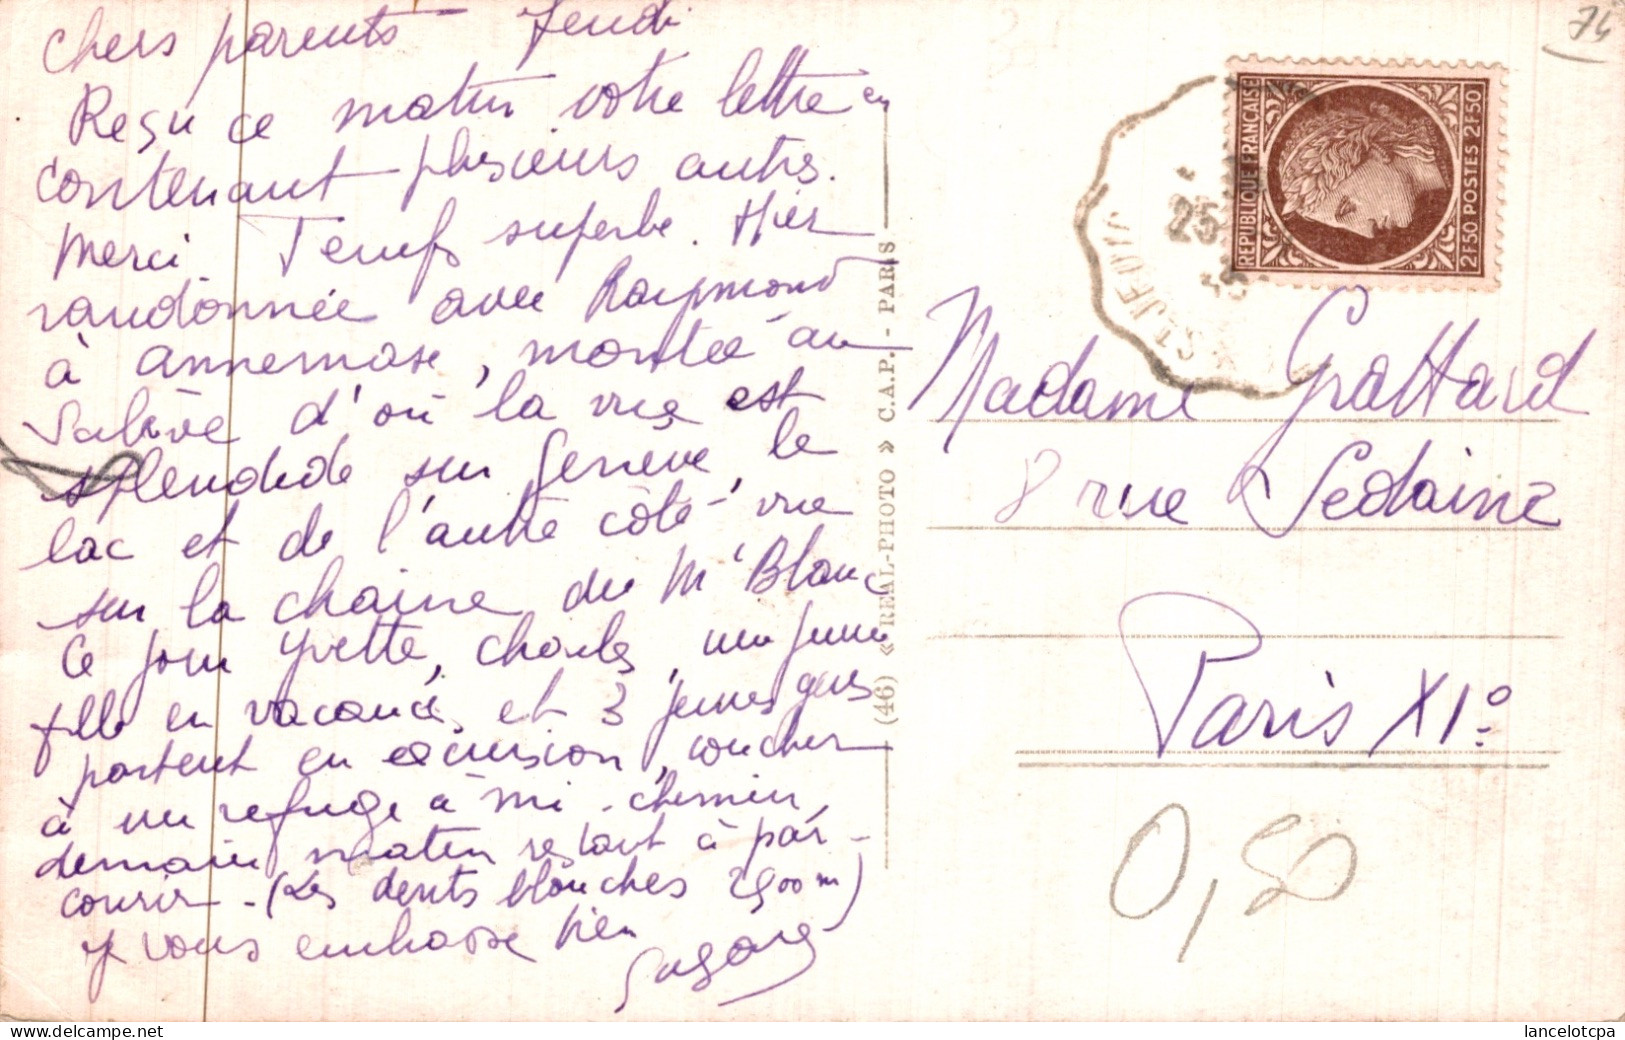 Chers parents Jeudi
Reçu ce matin votre lettre en
contenant plusieurs autres.
Merci. Temps superbe. Hier
randonnée avec Raymond
à Annemasse, montée au
Salève d'où la vue est
splendide sur Genève le
lac et de l'autre côté vue
sur la chaine du Mt Blanc
Ce jour Yvette, Charles, une jeune
fille en vacances et 3 jeunes gens
partent en excursion, coucher
à un refuge à mi-chemin,
demain matin restant à par-
courir - (Les dents blanches 2900m)
Je vous embrasse bien
(46) « REAL-PHOTO » C.A.P. - PARIS
74
REPUBLIQUE FRANÇAISE
2F50 POSTES 2F50
25
Madame Grattard
8 rue Sedaine
Paris XIe
0,50
lancelotcpa
www.delcampe.net